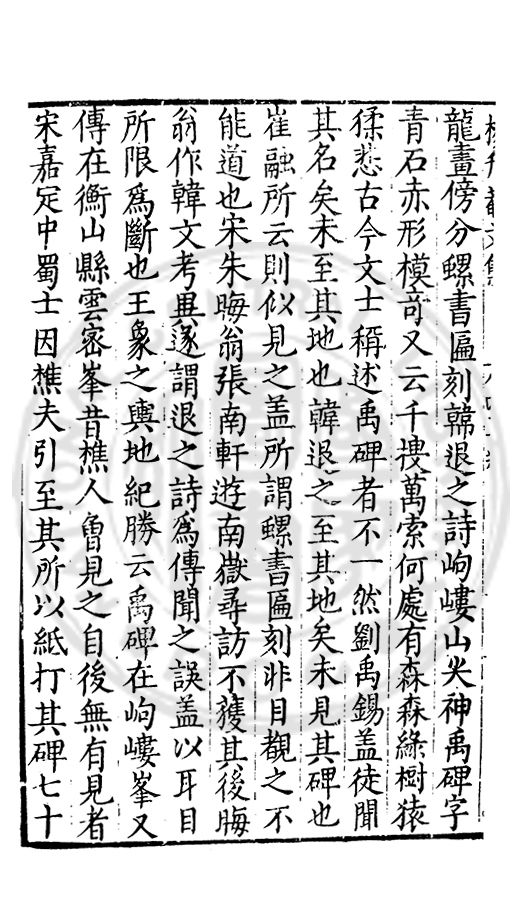 龍畫傍分螺書匾刻韓退之詩岣嶁山尖神禹碑字
青石赤形模奇又云千搜萬索何處有森森綠樹猿
猱悲古今文士稱述禹碑者不一然劉禹錫蓋徒聞
其名矣未至其地也韓退之至其地矣未見其碑也
崔融所云則似見之蓋所謂螺書匾刻非目覩之不
能道也宋朱晦翁張南軒遊南嶽尋訪不獲其後晦
翁作韓文考異遂謂退之詩為傳聞之誤蓋以耳目
所限為斷也王象之輿地紀勝云禹碑在岣嶁峯又
傳在衡山縣雲密峯昔樵人曾見之自後無有見者
宋嘉定中蜀士因樵夫引至其所以紙打其碑七十